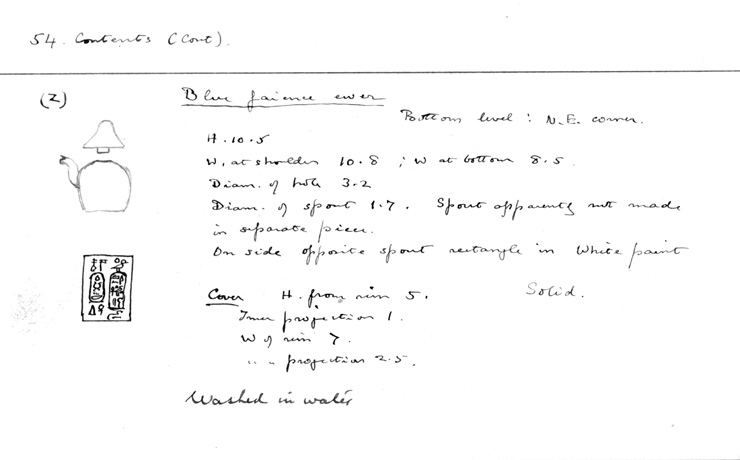 54. Contents (Cont).
(Z)
Blue faience ewer
Bottom level: N.E. corner.
H. 10.5
W. at shoulder 10.8 ; W at bottom 8.5.
Diam. of hole 3.2
Diam. of spout 1.7. Spout apparently not made
in separate piece.
On side opposite spout rectangle in White paint
Cover H. from rim 5. Solid.
Inner projection 1.
W of rim 7.
" " projection 2.5.
Washed in water